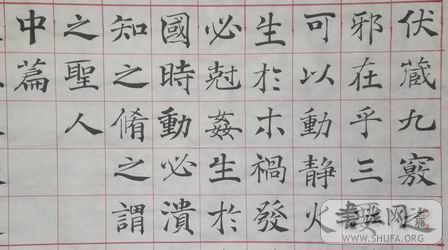 伏藏九竅
邪在乎三要
可以動靜火
生於木禍發
必尅姦生於
國時動必潰
知之脩之謂
之聖人
中篇
書法网
WWW.SHUFA.ORG